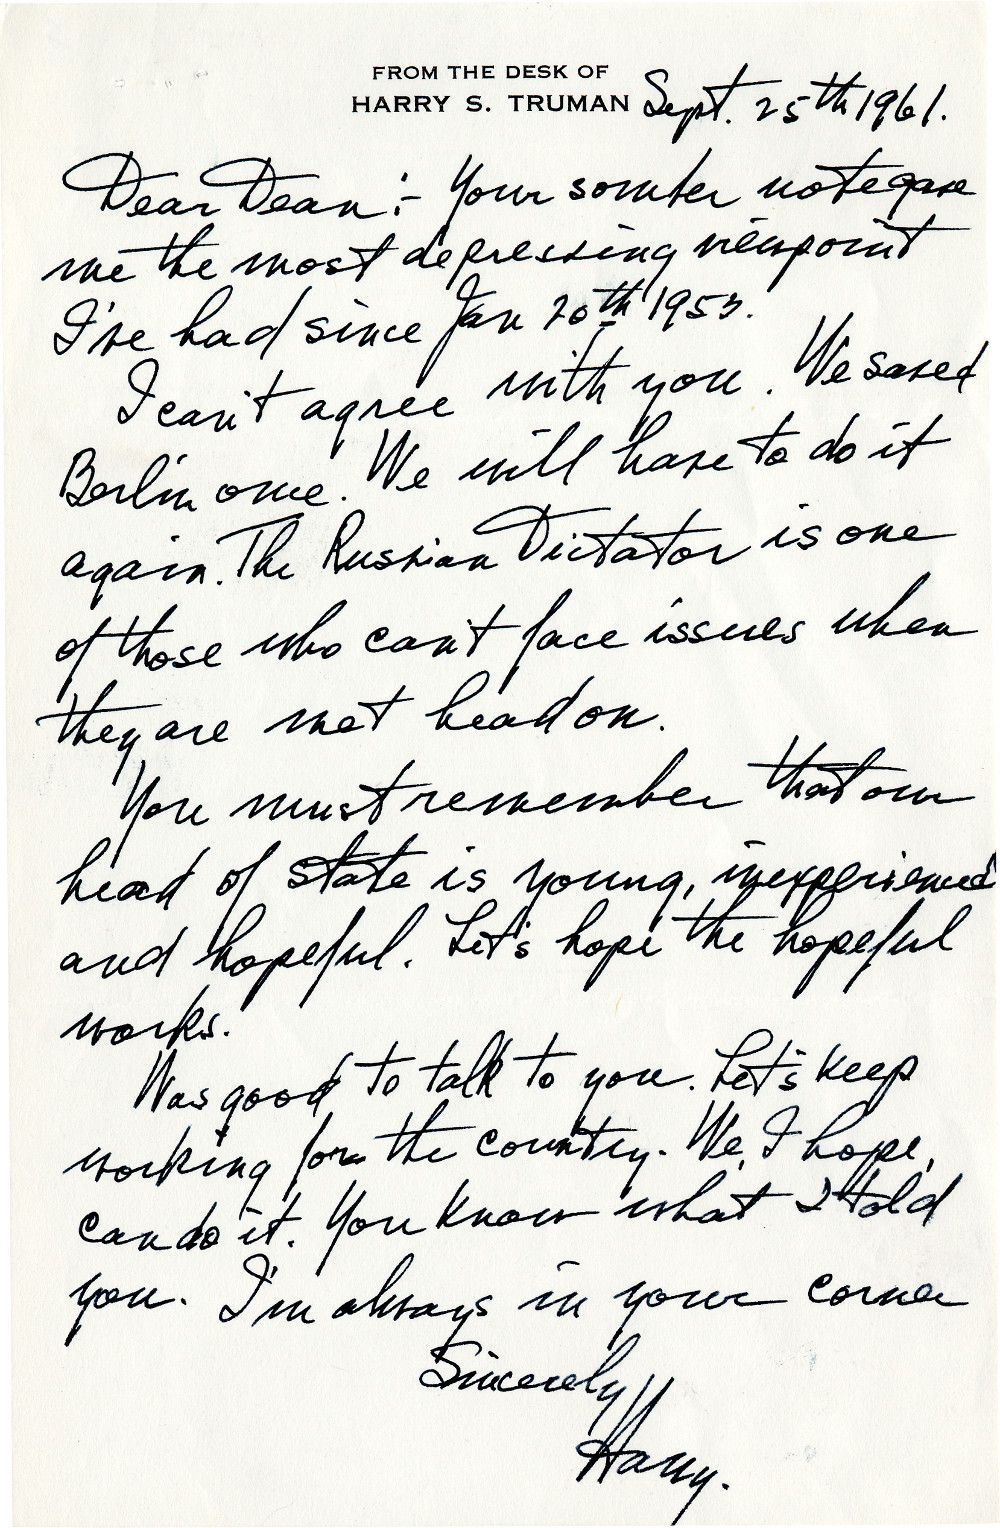 FROM THE DESK OF
HARRY S. TRUMAN Sept. 25th 1961.
Dear Dean:- Your somber note gave
me the most depressing viewpoint
I've had since Jan 20th 1953.
I can't agree with you. We saved
Berlin once. We will have to do it
again. The Russian Dictator is one
of those who can't face issues when
they are met head on.
You must remember that our
head of state is young, inexperienced
and hopeful. Let's hope the hopeful
works.
Was good to talk to you. Let's keep
working for the country. We, I hope,
can do it. You know what I told
you. I'm always in your corner
Sincerely
Harry.